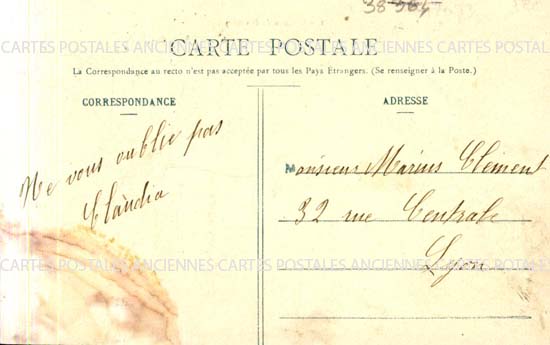 38-564
CARTES POSTALES ANCIENNES CARTES POSTALES ANCIENNES CARTES POSTALES
CARTE POSTALE
La Correspondance au recto n'est pas acceptée par tous les Pays Étrangers. (Se renseigner à la Poste.)
CORRESPONDANCE
Ne vous oublie pas
Claudia
ADRESSE
Monsieur Marius Clément
32 rue Centrale
Lyon
CARTES POSTALES ANCIENNES CARTES POSTALES ANCIENNES CARTES POSTALES